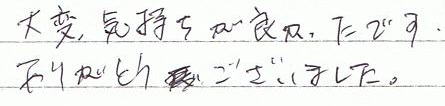 大変、気持ちが良かったです.
ありがとうございました。